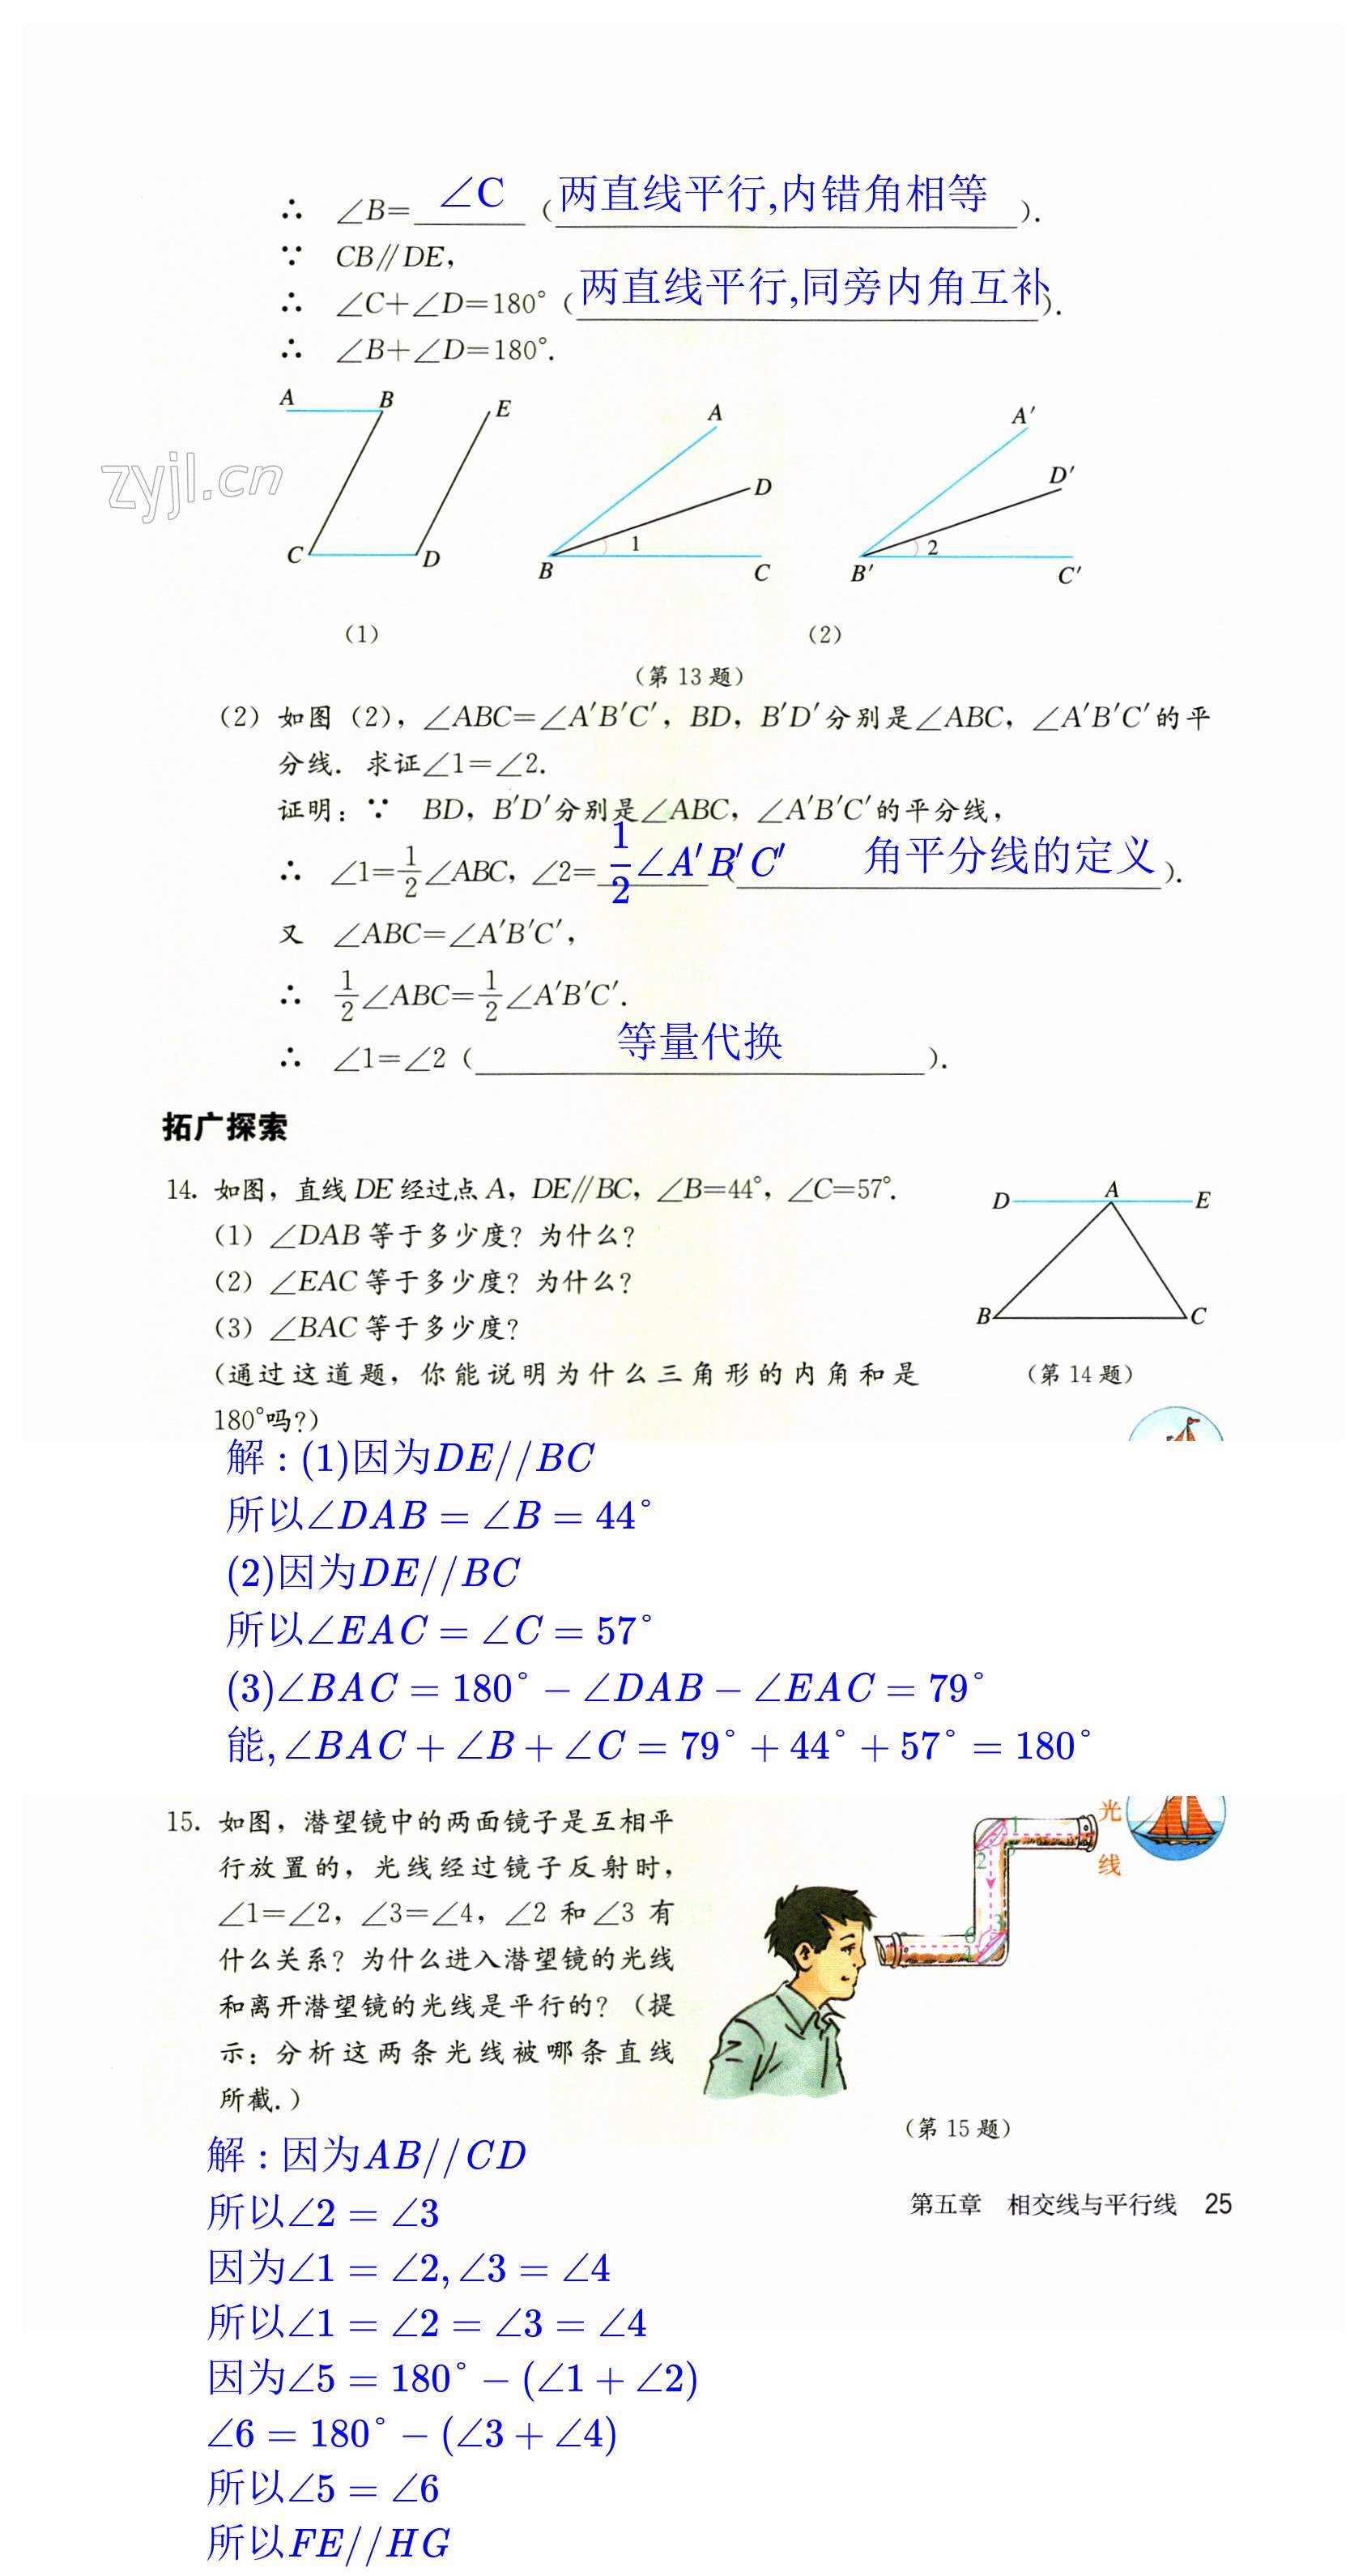 ∴ ∠B= ∠C (两直线平行,内错角相等).
∵ CB∥DE,
∴ ∠C+∠D=180° (两直线平行,同旁内角互补).
∴ ∠B+∠D=180°.
A B E A A′
zyjl.cn D D′
C D B 1 C B′ 2 C′
(1) (2)
(第 13 题)
(2) 如图 (2), ∠ABC=∠A′B′C′, BD, B′D′分别是∠ABC, ∠A′B′C′的平
分线. 求证∠1=∠2.
证明: ∵ BD, B′D′分别是∠ABC, ∠A′B′C′的平分线,
∴ ∠1=1/2∠ABC, ∠2= 1/2∠A′B′C′ (角平分线的定义).
又 ∠ABC=∠A′B′C′,
∴ 1/2∠ABC=1/2∠A′B′C′.
∴ ∠1=∠2 (等量代换).
拓广探索
14. 如图, 直线 DE 经过点 A, DE∥BC, ∠B=44°, ∠C=57°.
(1) ∠DAB 等于多少度? 为什么?
(2) ∠EAC 等于多少度? 为什么?
(3) ∠BAC 等于多少度?
(通过这道题, 你能说明为什么三角形的内角和是
180°吗?)
D A E
B C
(第 14 题)
解 : (1)因为DE//BC
所以∠DAB = ∠B = 44°
(2)因为DE//BC
所以∠EAC = ∠C = 57°
(3)∠BAC = 180° − ∠DAB − ∠EAC = 79°
能, ∠BAC + ∠B + ∠C = 79° + 44° + 57° = 180°
15. 如图, 潜望镜中的两面镜子是互相平
行放置的, 光线经过镜子反射时,
∠1=∠2, ∠3=∠4, ∠2 和∠3 有
什么关系? 为什么进入潜望镜的光线
和离开潜望镜的光线是平行的? (提
示: 分析这两条光线被哪条直线
所截.)
光
线
1
2 5
6 3
4
(第 15 题)
解 : 因为AB//CD
所以∠2 = ∠3
因为∠1 = ∠2, ∠3 = ∠4
所以∠1 = ∠2 = ∠3 = ∠4
因为∠5 = 180° − (∠1 + ∠2)
∠6 = 180° − (∠3 + ∠4)
所以∠5 = ∠6
所以FE//HG
第五章 相交线与平行线 25